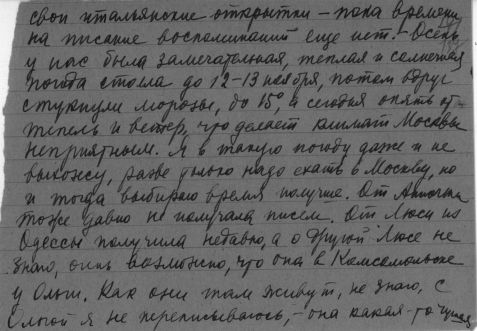 свои итальянские открытки – пока времени
на писание воспоминаний еще нет. – Осень
у нас была замечательная, теплая и солнечная
погода стояла до 12–13 ноября, потом вдруг
стукнули морозы, до 15°, а сегодня опять от-
тепель и ветер, что делает климат Москвы
неприятным. Я в такую погоду даже и не
выхожу, разве только надо ехать в Москву, но
и тогда выбираю время получше. От
тоже давно не получала писем. От Люси из
Одессы получила недавно, а о другой Люсе не
знаю, очень возможно, что она в Комсомольске
у Ольги. Как они там живут, не знаю, с
Ольгой я не переписываюсь, – она какая-то чужая